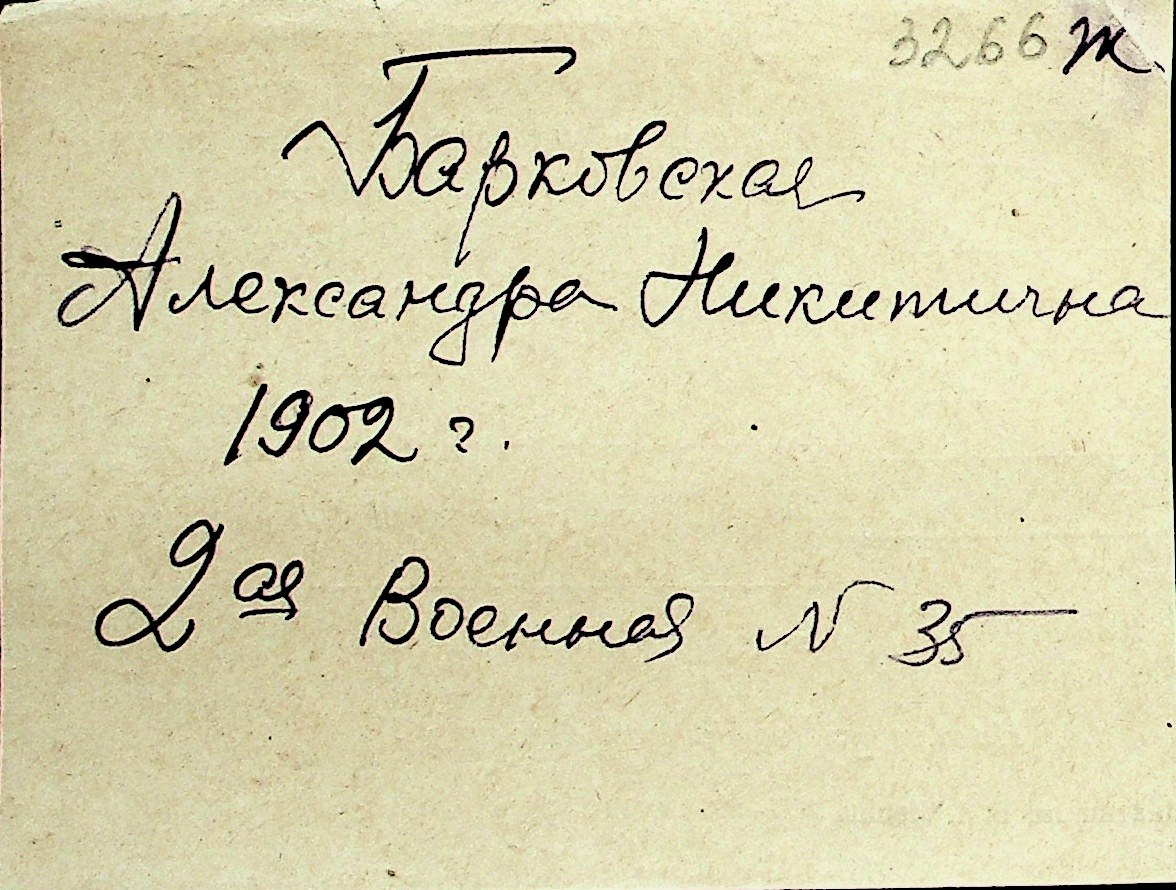 3266 ж
Барковская
Александра Никитична
1902 г.
2ая Военная N 35